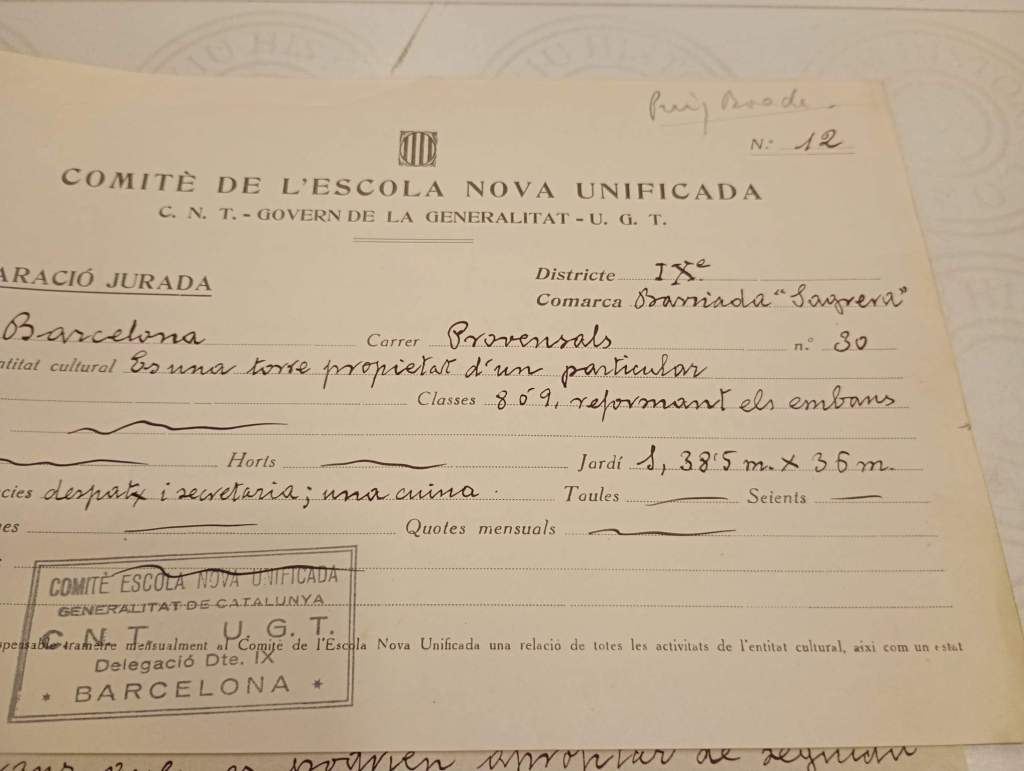 Puig Boada.
N.º 12
COMITÈ DE L'ESCOLA NOVA UNIFICADA
C. N. T. - GOVERN DE LA GENERALITAT - U. G. T.
ARACIÓ JURADA
Districte IXè
Comarca Barriada "Sagrera"
Barcelona Carrer Provensals n.º 30
ntitat cultural Es una torre propietat d'un particular
Classes 8 ó 9, reformant els embans
Horts Jardí 1, 38'5 m. x 36 m.
cies despatx i secretaria; una cuina. Taules Seients
es Quotes mensuals
COMITÈ ESCOLA NOVA UNIFICADA
GENERALITAT DE CATALUNYA
C. N. T. U. G. T.
Delegació Dte. IX
* BARCELONA *
spensable trametre mensualment al Comitè de l'Escola Nova Unificada una relació de totes les activitats de l'entitat cultural, així com un estat
es podrien apropiar de seguida